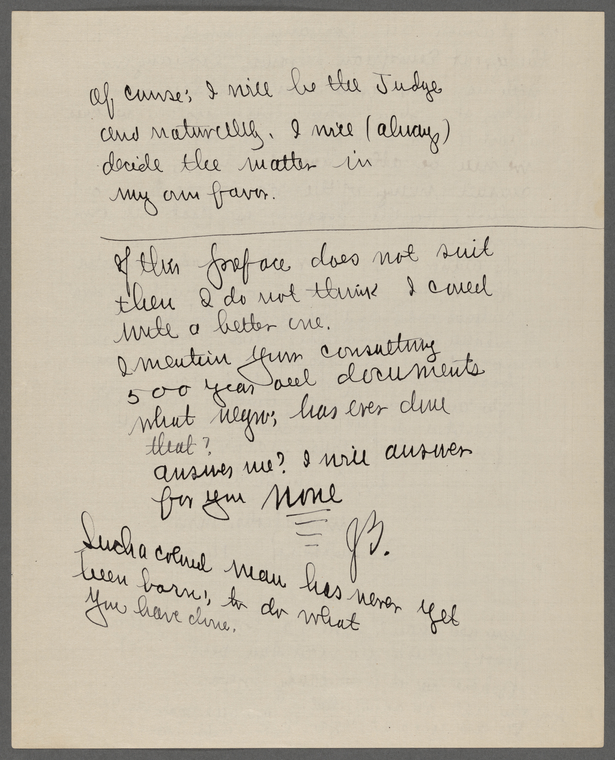 Of course; I will be the Judge
and naturally, I will (always)
decide the matter in
my own favor.
If this preface does not suit
then I do not think I could
write a better one.
I mention your consulting
500 year old documents
what negro; has ever done
that?
answer me? I will answer
for you None
JB.
Such a colored man has never yet
been born; to do what
you have done.